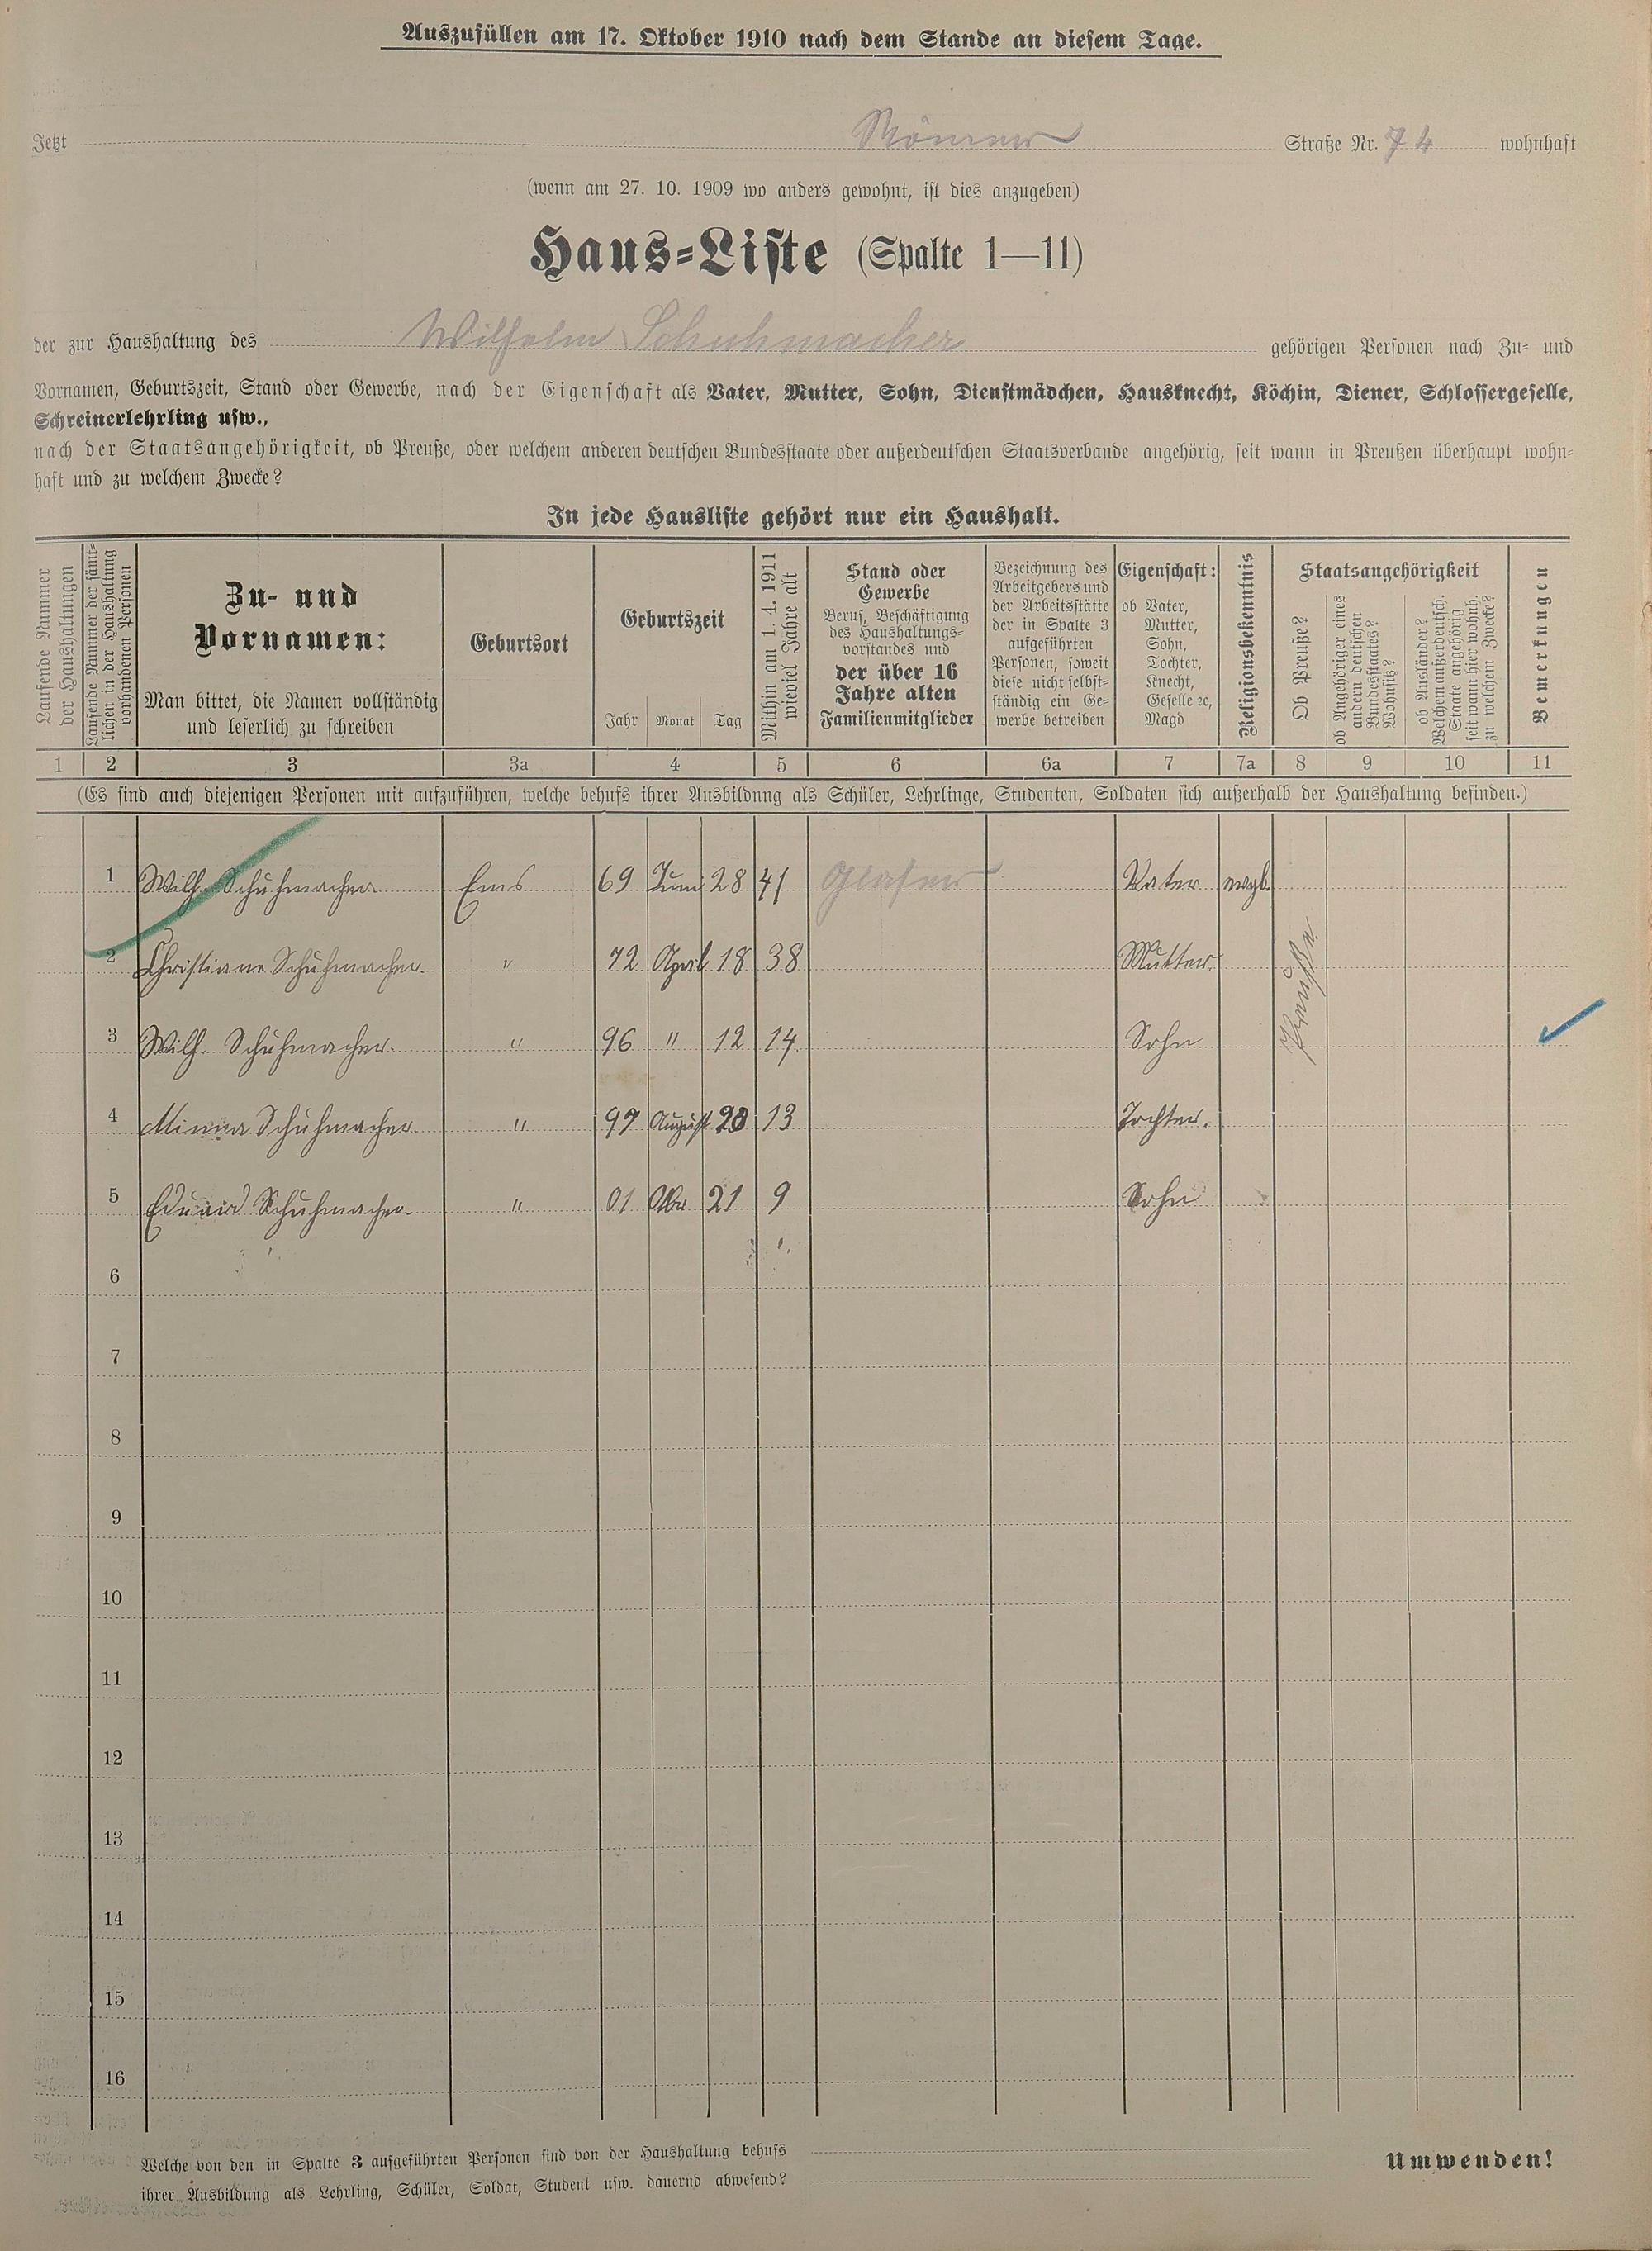 Auszufüllen am 17. Oktober 1910 nach dem Stande an diesem Tage.
Jetzt Römer Straße Nr. 74 wohnhaft
(wenn am 27. 10. 1909 wo anders gewohnt, ist dies anzugeben)
Haus-Liste (Spalte 1—11)
der zur Haushaltung des Wilhelm Schuhmacher gehörigen Personen nach Zu- und
Vornamen, Geburtszeit, Stand oder Gewerbe, nach der Eigenschaft als Vater, Mutter, Sohn, Dienstmädchen, Hausknecht, Köchin, Diener, Schlossergeselle,
Schreinerlehrling usw.,
nach der Staatsangehörigkeit, ob Preuße, oder welchem anderen deutschen Bundesstaate oder außerdeutschen Staatsverbande angehörig, seit wann in Preußen überhaupt wohn-
haft und zu welchem Zwecke?
In jede Hausliste gehört nur ein Haushalt.
Laufende Nummer
der Haushaltungen
Laufende Nummer der sämt-
lichen in der Haushaltung
vorhandenen Personen
Zu- und
Vornamen:
Man bittet, die Namen vollständig
und leserlich zu schreiben
Geburtsort
Geburtszeit
Jahr Monat Tag
Mithin am 1. 4. 1911
wieviel Jahre alt
Stand oder
Gewerbe
Beruf, Beschäftigung
des Haushaltungs-
vorstandes und
der über 16
Jahre alten
Familienmitglieder
Bezeichnung des
Arbeitgebers und
der Arbeitsstätte
der in Spalte 3
aufgeführten
Personen, soweit
diese nicht selbst-
ständig ein Ge-
werbe betreiben
Eigenschaft:
ob Vater,
Mutter,
Sohn,
Tochter,
Knecht,
Geselle ꝛc,
Magd
Religionsbekenntnis
Staatsangehörigkeit
Ob Preuße?
ob Angehöriger eines
andern deutschen
Bundesstaates?
Wohnsitz?
ob Ausländer?
Welchem außerdeutsch.
Staate angehörig
seit wann hier wohnh.
zu welchem Zwecke?
Bemerkungen
1 2 3 3a 4 5 6 6a 7 7a 8 9 10 11
(Es sind auch diejenigen Personen mit aufzuführen, welche behufs ihrer Ausbildnng als Schüler, Lehrlinge, Studenten, Soldaten sich außerhalb der Haushaltung befinden.)
1 Wilh. Schuhmacher Ems 69 Juni 28 41 Glaser Vater evgl.
2 Christiane Schuhmacher. " 72 April 18 38 Mutter. Preuße
3 Wilh. Schuhmacher. " 96 " 12 14 Sohn
4 Minna Schuhmacher " 97 August 20 13 Tochter.
5 Eduard Schuhmacher " 01 21 9 Sohn
6
7
8
9
10
11
12
13
14
15
16
Welche von den in Spalte 3 aufgeführten Personen sind von der Haushaltung behufs
ihrer Ausbildung als Lehrling, Schüler, Soldat, Student usw. dauernd abwesend?
Umwenden!